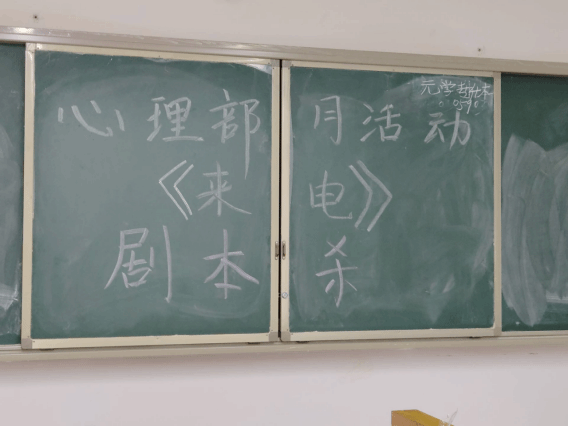 心理部月活动
《来电》
剧本杀